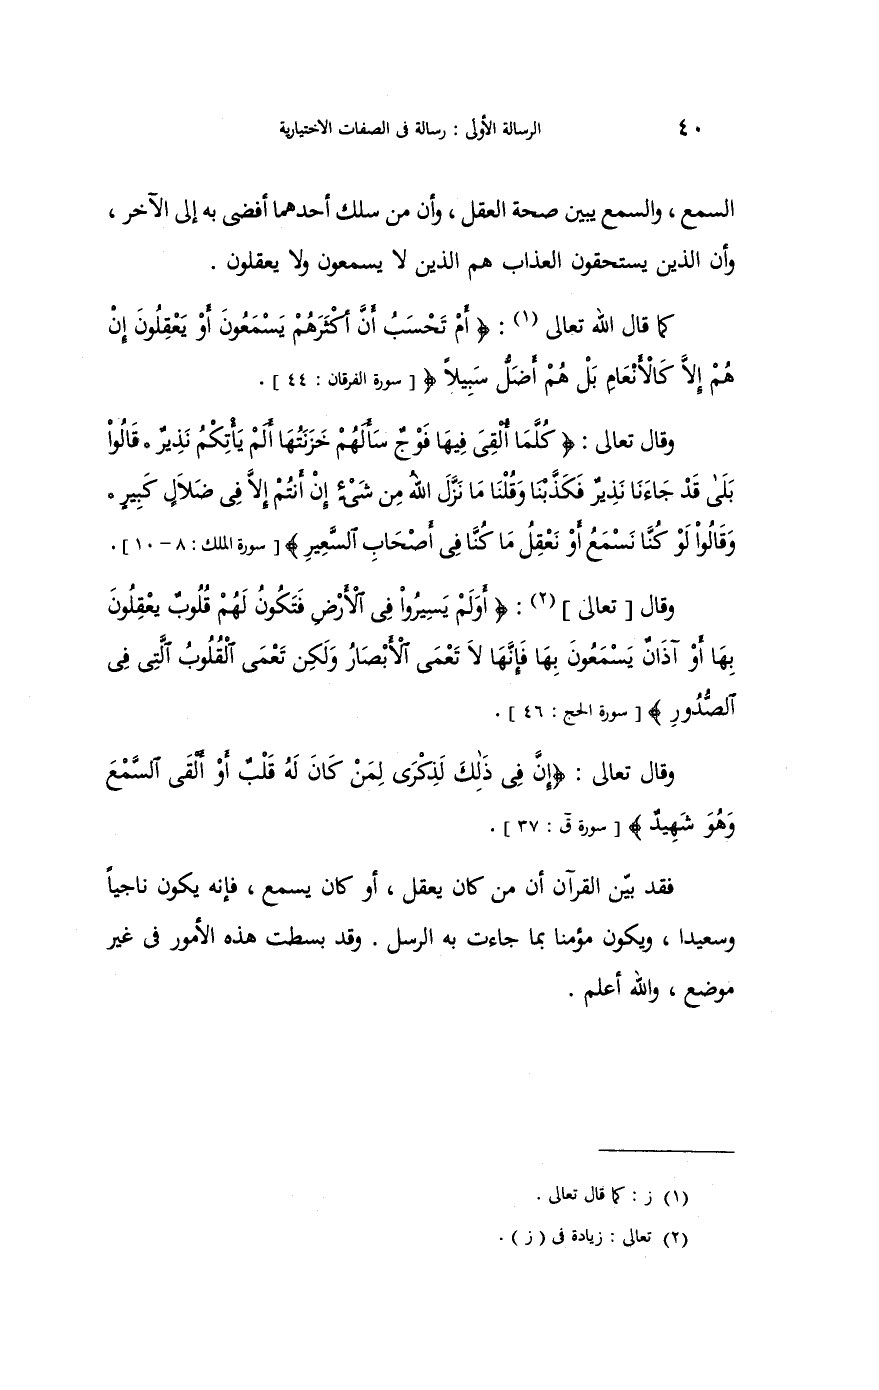 ٤٠ الرسالة الأولى : رسالة فى الصفات الاختيارية
السمع ، والسمع يبين صحة العقل ، وأن من سلك أحدهما أفضى به إلى الآخر ،
وأن الذين يستحقون العذاب هم الذين لا يسمعون ولا يعقلون .
كما قال الله تعالى (١) : ﴿ أَمْ تَحْسَبُ أَنَّ أَكْثَرَهُمْ يَسْمَعُونَ أَوْ يَعْقِلُونَ إِنْ
هُمْ إِلاَّ كَالْأَنْعَامِ بَلْ هُمْ أَضَلُّ سَبِيلاً ﴾ [ سورة الفرقان : ٤٤ ] .
وقال تعالى : ﴿ كُلَّمَا أُلْقِىَ فِيهَا فَوْجٌ سَأَلَهُمْ خَزَنَتُهَا أَلَمْ يَأْتِكُمْ نَذِيرٌ ۰ قَالُواْ
بَلَىٰ قَدْ جَاءَنَا نَذِيرٌ فَكَذَّبْنَا وَقُلْنَا مَا نَزَّلَ اللهُ مِن شَىْءٍ إِنْ أَنتُمْ إِلاَّ فِى ضَلاَلٍ كَبِيرٍ ۰
وَقَالُواْ لَوْ كُنَّا نَسْمَعُ أَوْ نَعْقِلُ مَا كُنَّا فِى أَصْحَابِ ٱلسَّعِيرِ ﴾ [ سورة الملك : ٨ – ١٠ ] .
وقال [ تعالى ] (٢) : ﴿ أَوَلَمْ يَسِيرُواْ فِى ٱلْأَرْضِ فَتَكُونُ لَهُمْ قُلُوبٌ يعْقِلُونَ
بِهَا أَوْ آذَانٌ يَسْمَعُونَ بِهَا فَإِنَّهَا لاَ تَعْمَى ٱلْأَبْصَارُ وَلَكِن تَعْمَى ٱلْقُلُوبُ ٱلَّتِى فِى
ٱلصُّدُورِ ﴾ [ سورة الحج : ٤٦ ] .
وقال تعالى : ﴿إِنَّ فِى ذَٰلِكَ لَذِكْرَى لِمَنْ كَانَ لَهُ قَلْبٌ أَوْ أَلْقَى ٱلسَّمْعَ
وَهُوَ شَهِيدٌ ﴾ [ سورة قٓ : ٣٧ ] .
فقد بيّن القرآن أن من كان يعقل ، أو كان يسمع ، فإنه يكون ناجياً
وسعيدا ، ويكون مؤمنا بما جاءت به الرسل . وقد بسطت هذه الأمور فى غير
موضع ، والله أعلم .
(١) ز : كما قال تعالى .
(٢) تعالى : زيادة فى ( ز ) .